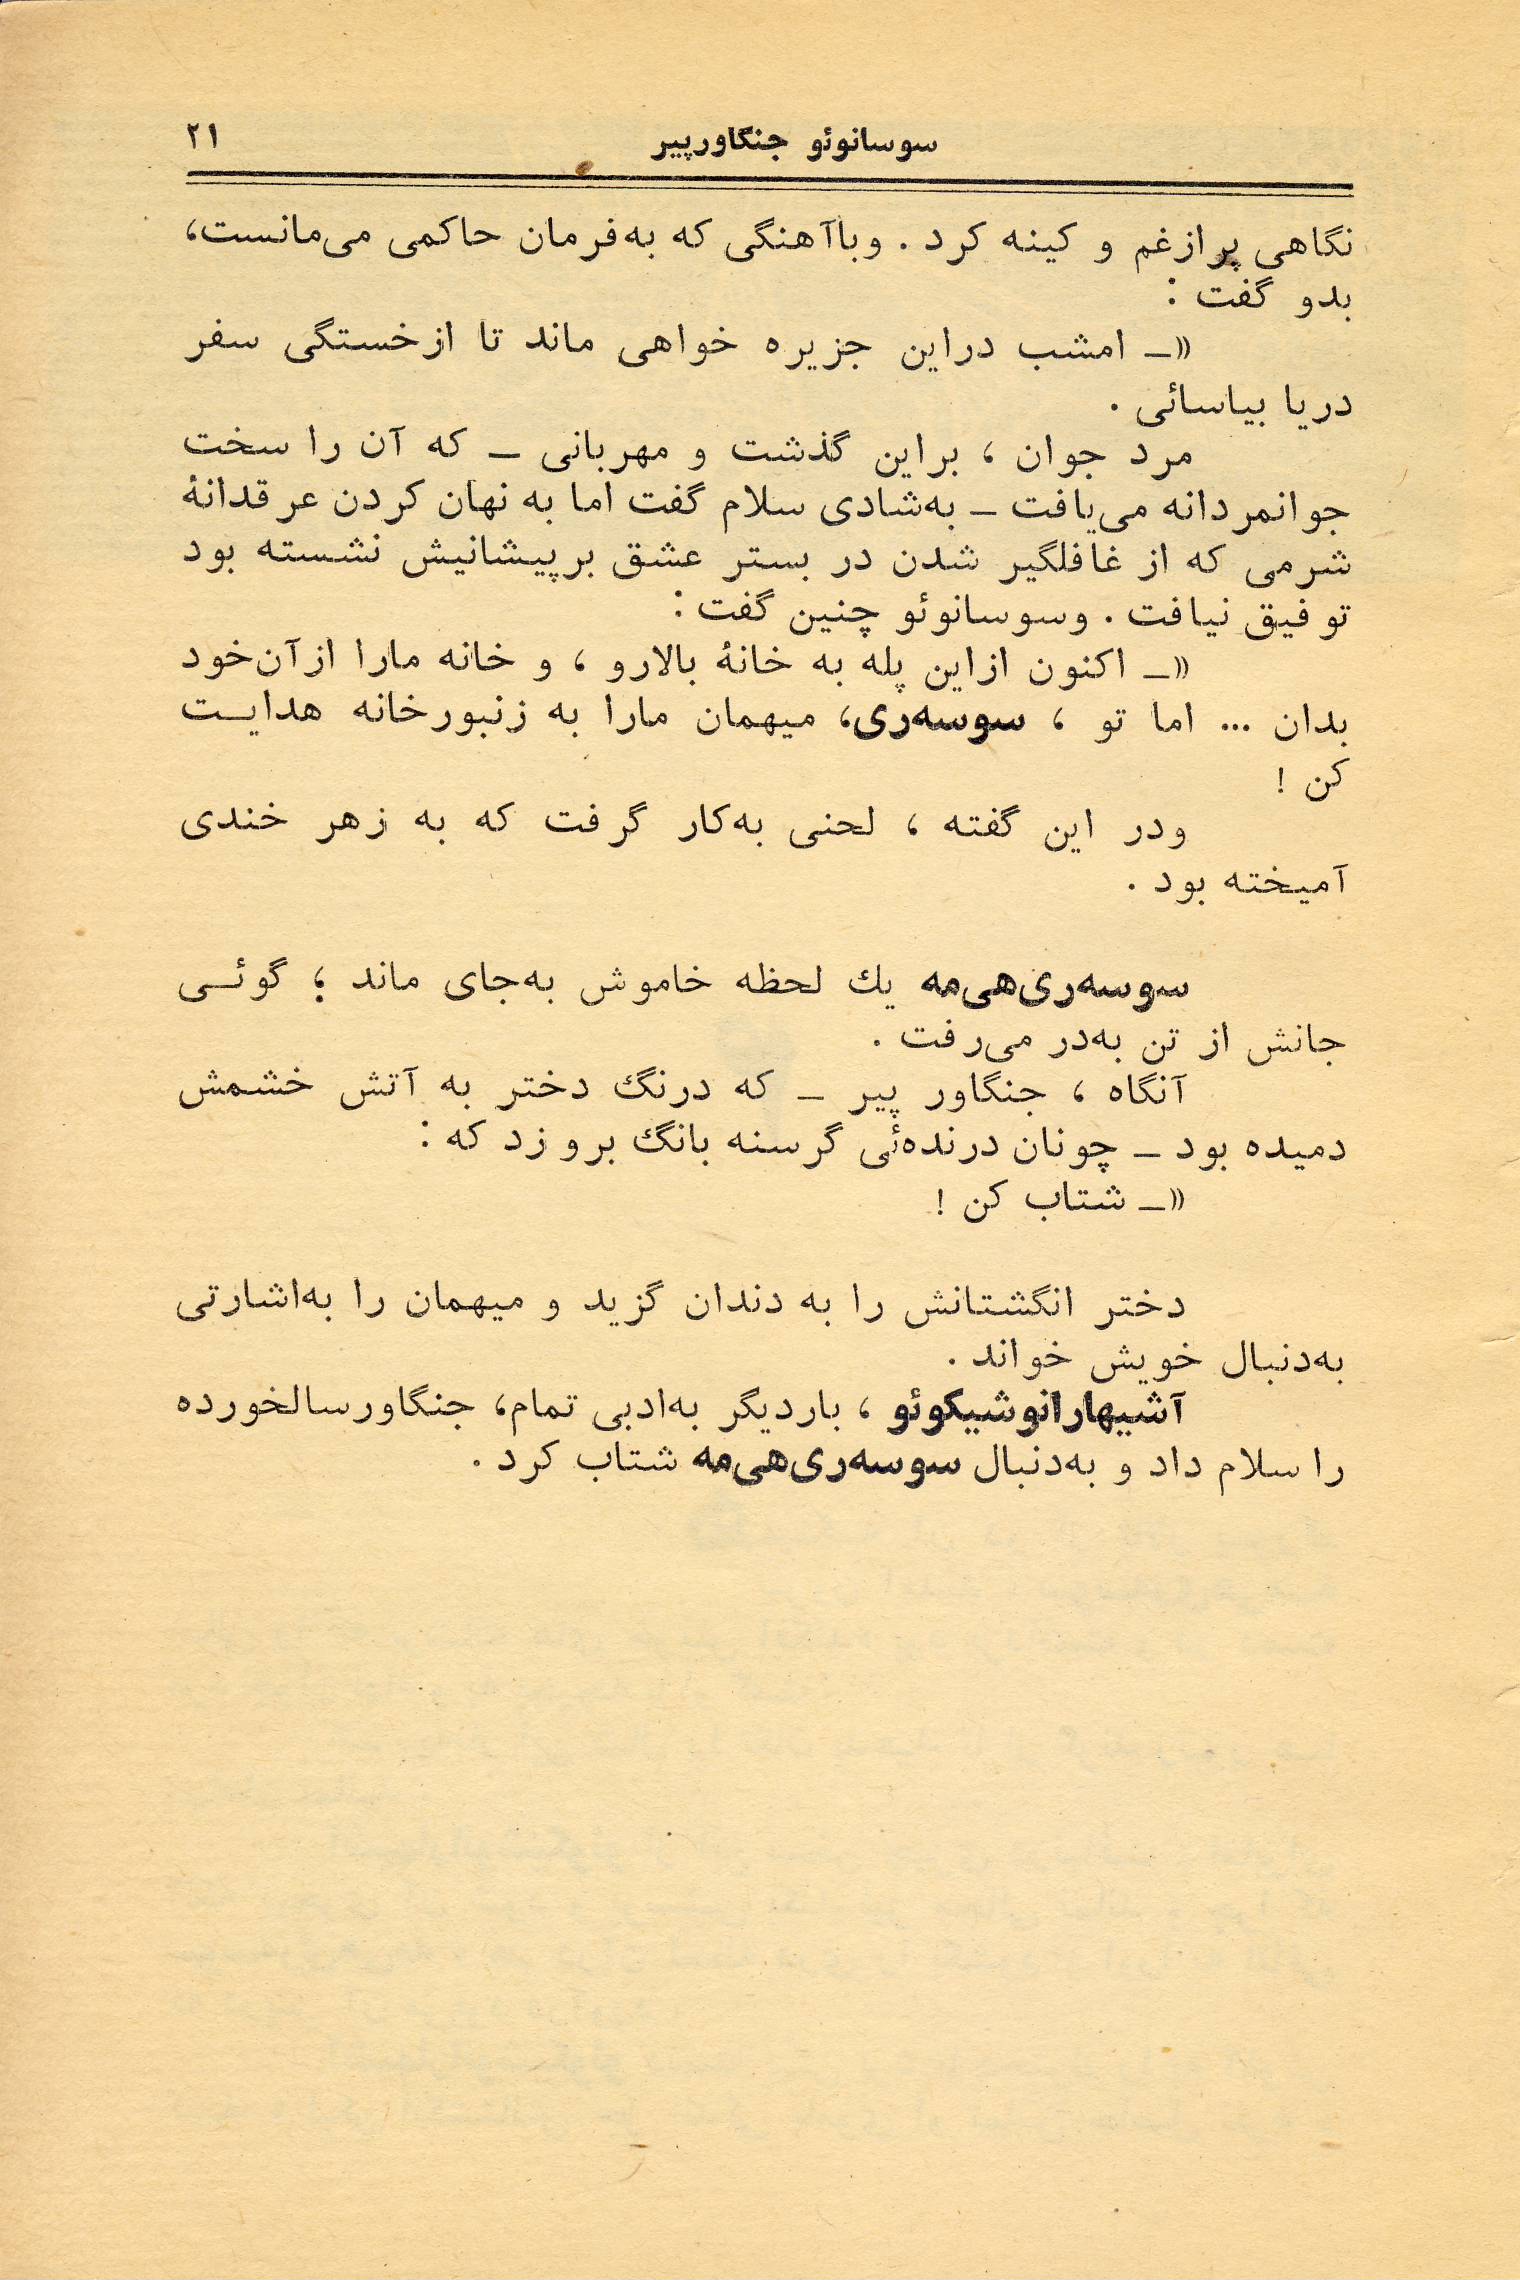 سوسانوئو جنگاورپیر
۲۱
نگاهی پرازغم و کینه کرد . وباآهنگی که به‌فرمان حاکمی می‌مانست،
بدو گفت :
«ـ امشب دراین جزیره خواهی ماند تا ازخستگی سفر
دریا بیاسائی .
مرد جوان ، براین گذشت و مهربانی ـ که آن را سخت
جوانمردانه می‌یافت ـ به‌شادی سلام گفت اما به نهان کردن عرقدانهٔ
شرمی که از غافلگیر شدن در بستر عشق برپیشانیش نشسته بود
توفیق نیافت . وسوسانوئو چنین گفت :
«ـ اکنون ازاین پله به خانهٔ بالارو ، و خانه مارا ازآن‌خود
بدان ... اما تو ، سوسه‌ری، میهمان مارا به زنبورخانه هدایت
کن !
ودر این گفته ، لحنی به‌کار گرفت که به زهر خندی
آمیخته بود .
سوسه‌ری‌هی‌مه یك لحظه خاموش به‌جای ماند ؛ گوئی
جانش از تن به‌در می‌رفت .
آنگاه ، جنگاور پیر ـ که درنگ دختر به آتش خشمش
دمیده بود ـ چونان درنده‌ئی گرسنه بانگ برو زد که :
«ـ شتاب کن !
دختر انگشتانش را به دندان گزید و میهمان را به‌اشارتی
به‌دنبال خویش خواند .
آشیهارانوشیکوئو ، باردیگر به‌ادبی تمام، جنگاورسالخورده
را سلام داد و به‌دنبال سوسه‌ری‌هی‌مه شتاب کرد .